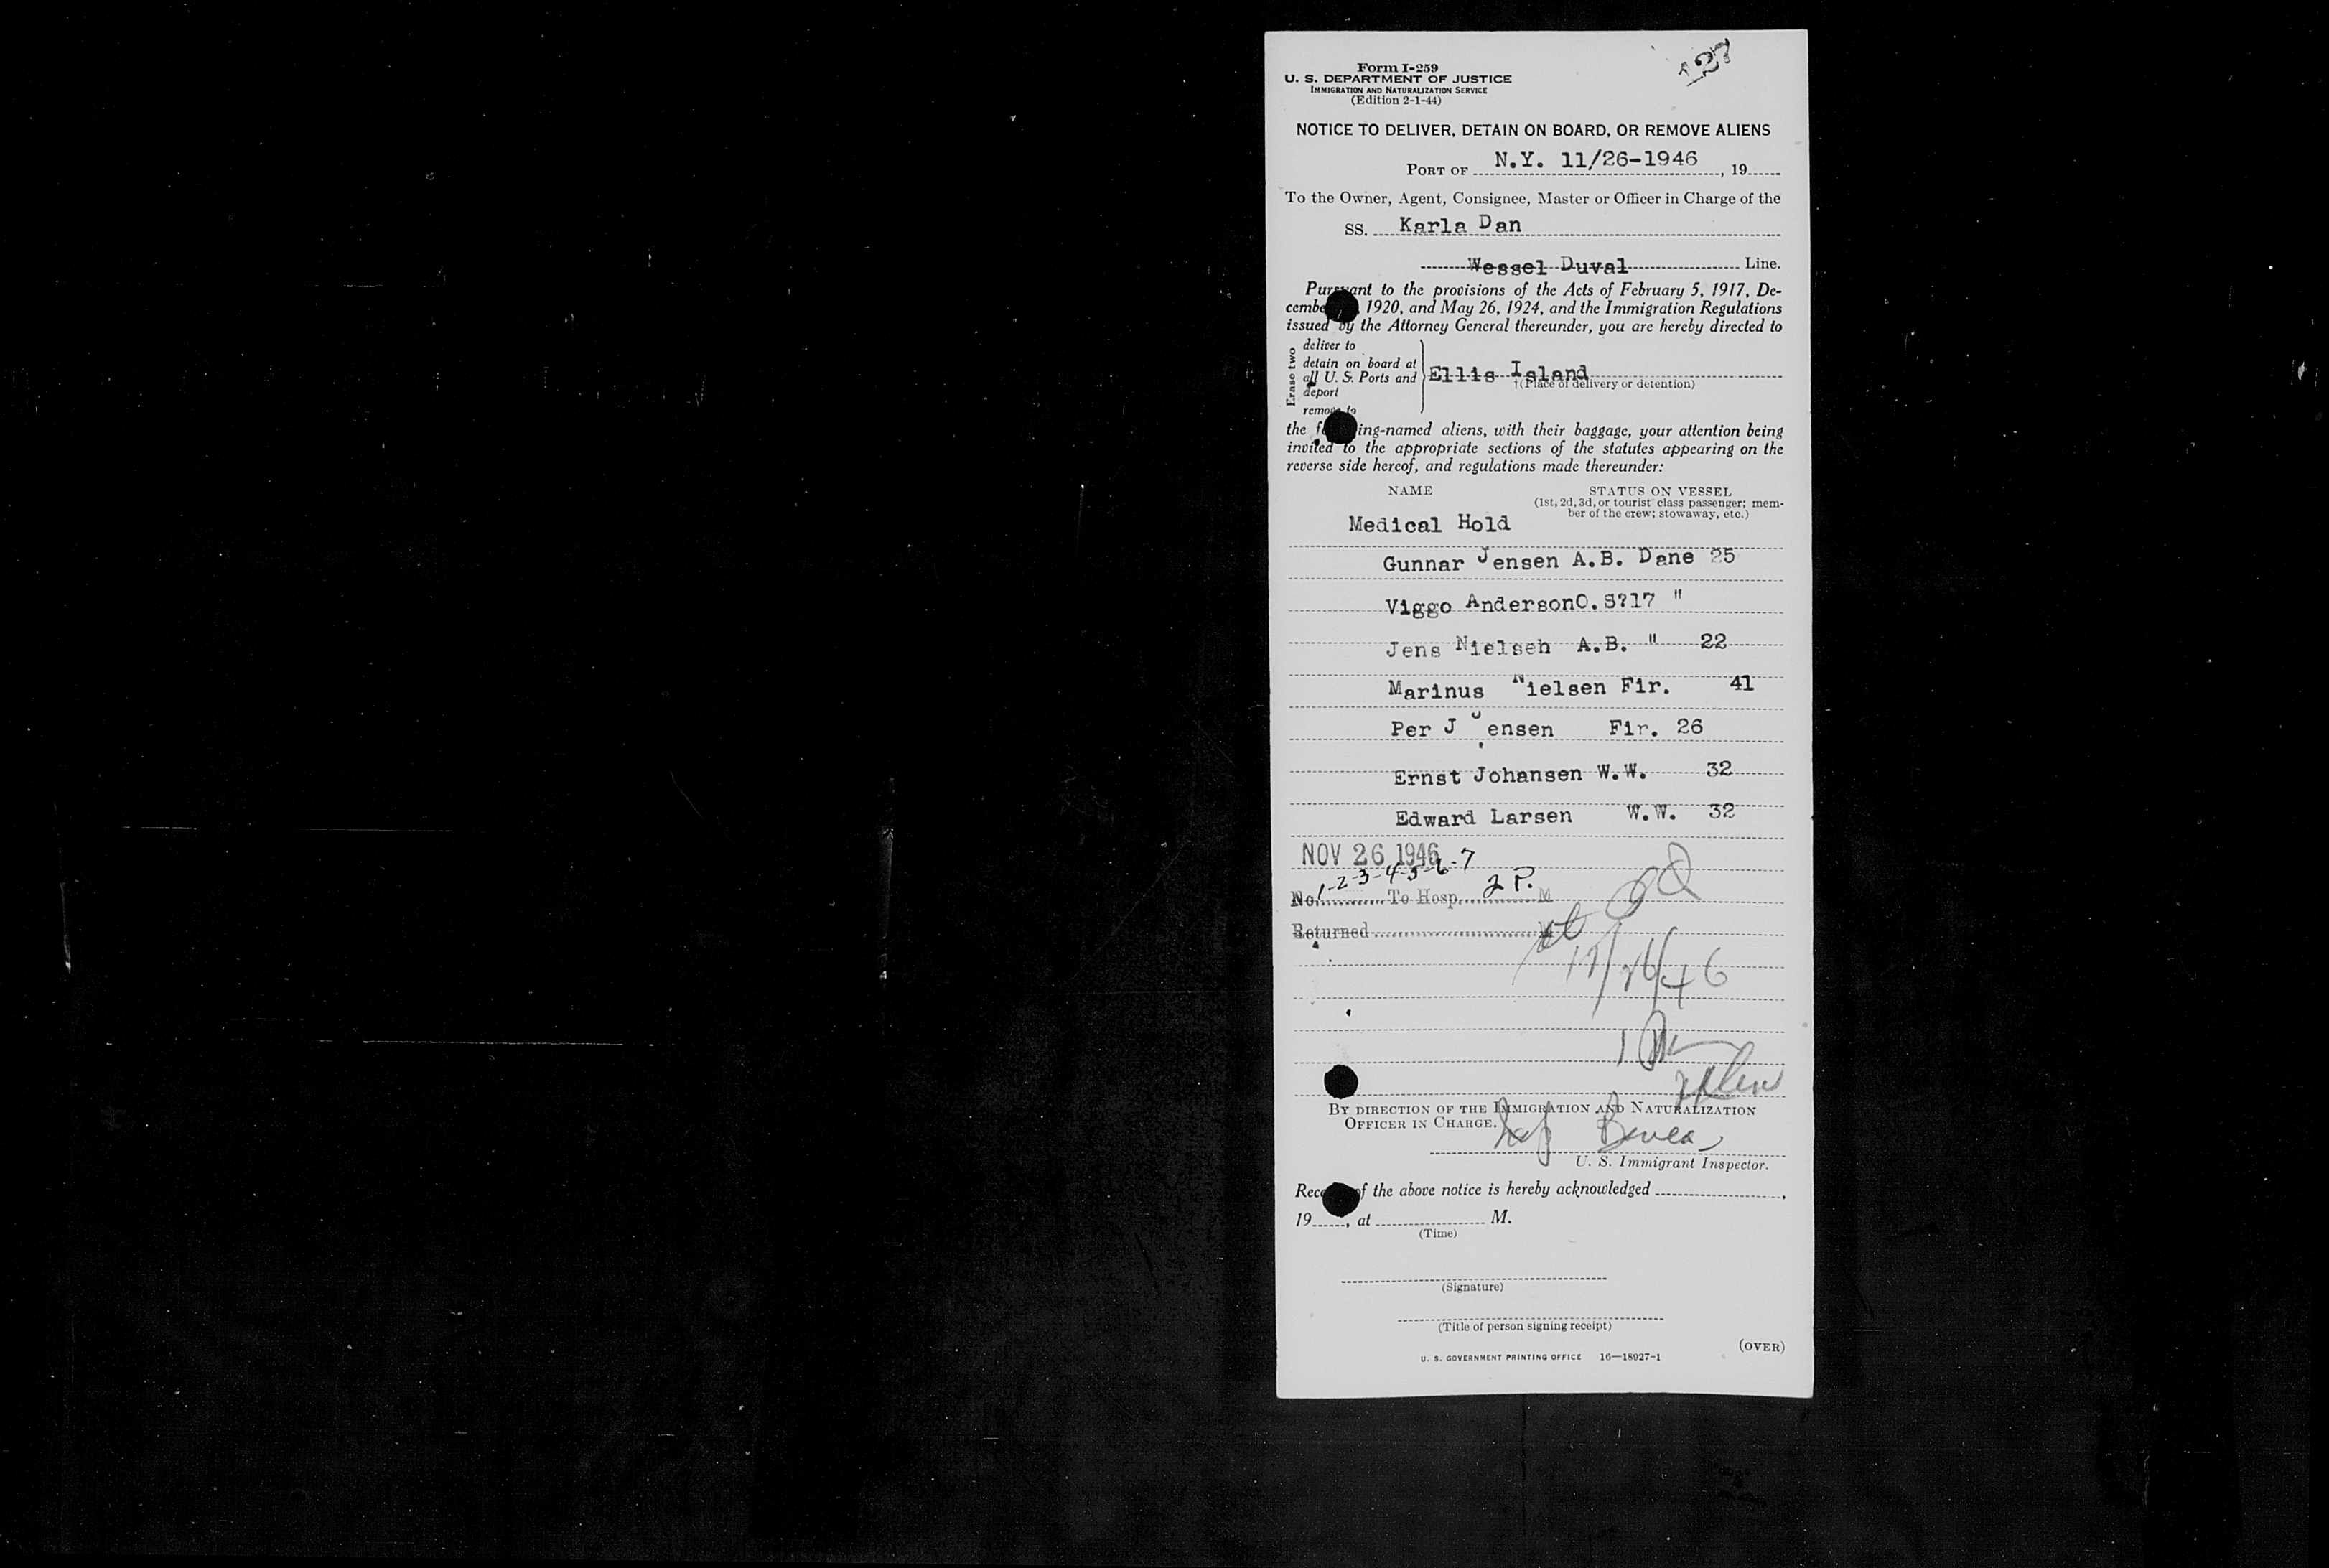 127
Form I-259
U. S. DEPARTMENT OF JUSTICE
IMMIGRATION AND NATURALIZATION SERVICE
(Edition 2-1-44)
NOTICE TO DELIVER, DETAIN ON BOARD, OR REMOVE ALIENS
PORT OF N.Y. 11/26-1946, 19
To the Owner, Agent, Consignee, Master or Officer in Charge of the
SS. Karla Dan
Wessel Duval Line.
Pursuant to the provisions of the Acts of February 5, 1917, De-
cembe 1920, and May 26, 1924, and the Immigration Regulations
issued by the Attorney General thereunder, you are hereby directed to
Erase two
deliver to
detain on board at
all U. S. Ports and
deport
remove to
Ellis Island
†(Place of delivery or detention)
the f ing-named aliens, with their baggage, your attention being
invited to the appropriate sections of the statutes appearing on the
reverse side hereof, and regulations made thereunder:
NAME STATUS ON VESSEL
(1st, 2d, 3d, or tourist class passenger; mem-
ber of the crew; stowaway, etc.)
Medical Hold
Gunnar Jensen A.B. Dane 25
Viggo AndersonO.S?17 "
Jens Nielseh A.B. " 22
Marinus Nielsen Fir. 41
Per J Jensen Fir. 26
Ernst Johansen W.W. 32
Edward Larsen W.W. 32
NOV 26 1946
No. 1-2-3-4-5-6-7 To Hosp. 2 P. M
Returned M
11/26/46
BY DIRECTION OF THE IMMIGRATION AND NATURALIZATION
OFFICER IN CHARGE.
U. S. Immigrant Inspector.
Rece of the above notice is hereby acknowledged ,
19 , at M.
(Time)
(Signature)
(Title of person signing receipt)
(OVER)
U. S. GOVERNMENT PRINTING OFFICE 16—18927-1